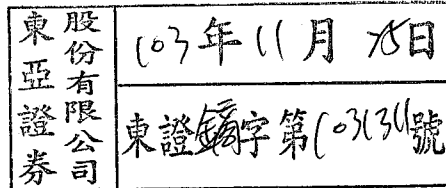 東亞證券
股份有限公司
103年11月25日
東證鏑字第1031311號